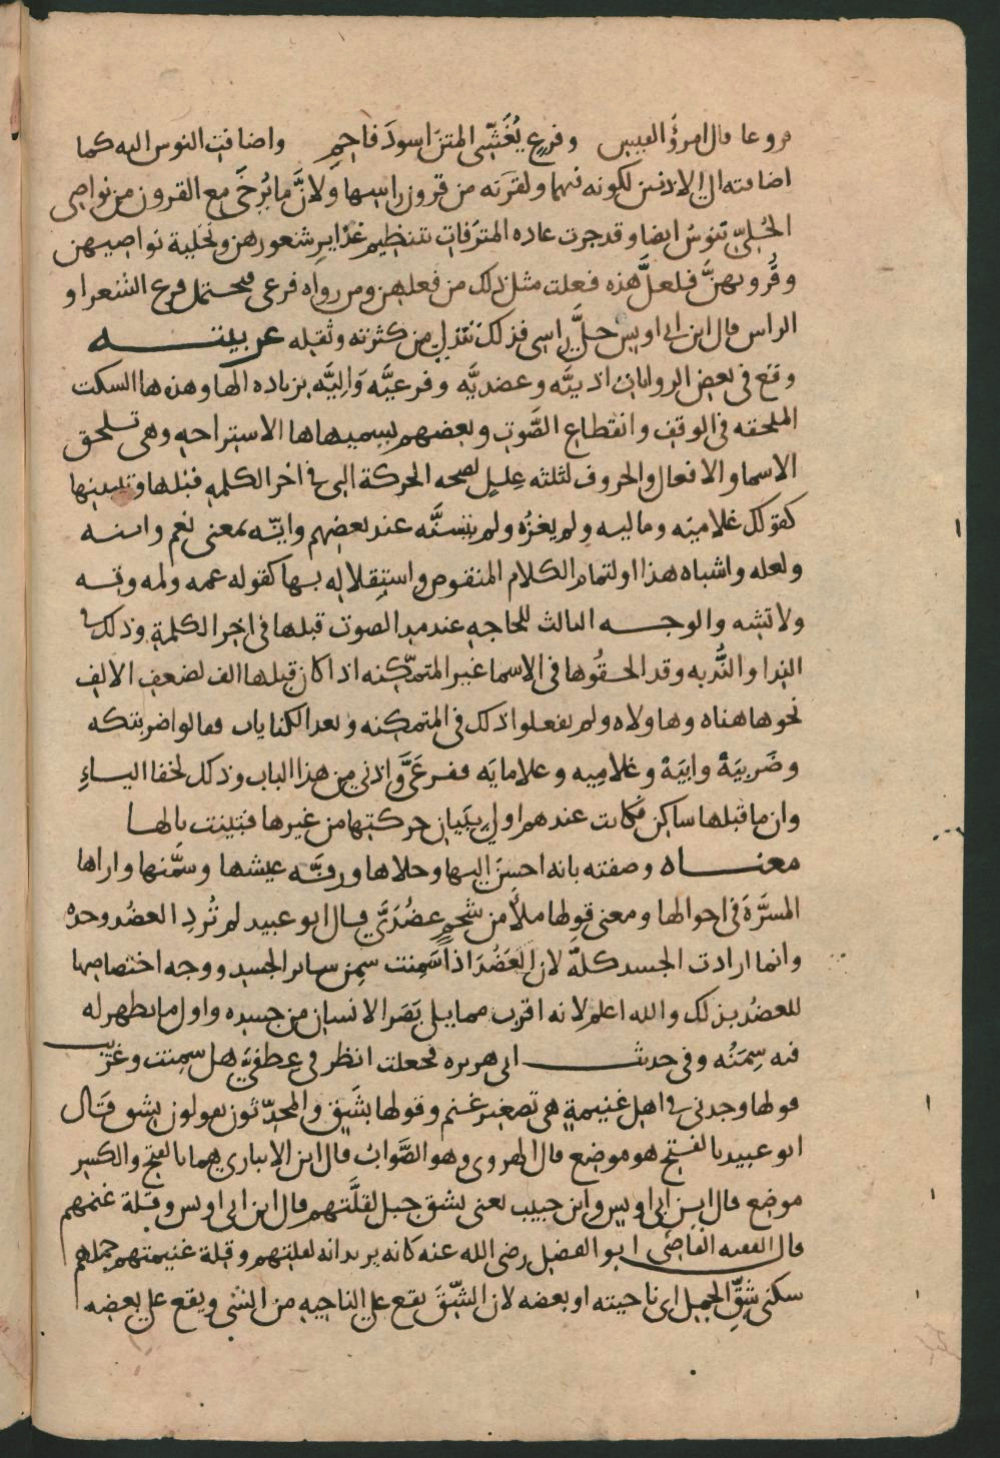 فروعا قال امرؤ القيس وفرع يُغَشّى المتنَ اسودَ فاحِمٍ واضافت النوس اليه كما
اضافته الى الاذنين لكونه فيهما ولقربه من قرون راسها ولانَّ ما يُرخَى مع القرون من نواصى
الحُليّ تنوسُ ايضا وقد جرت عاده المترفات بتنظيم غدايرِ شعورهن وتحلية نواصيهن
وقُرونهنَّ فلعلَّ هذه فعلت مثل ذلك من فعلهن ومن رواه فرعى فيحتمل فرع الشعر او
الراس قال ابن ابى اويس حلَّى راسى فذلك تتدلى من كثرته وثقله عربيته
وقع فى بعض الروايات اذنيَّه وعضديَّه وفرعيَّه وَاليَّه بزياده الها وهذه ها السكت
الملحقه فى الوقف وانقطاع الصَّوت وبعضهم يسميها ها الاستراحه وهى تلحق
الاسما والافعال والحروف لثلثه عِللٍ لصحه الحركة التى فى اخر الكلمه قبلها وتبيينها
كقولك غلاميَه وماليه ولم يغزُه ولم يتسنَّه عند بعضهم وانّه بمعنى نعم واينه
ولعله واشباه هذا او لتمام الكلام المنقوص واستقلاله بها كقوله عمه ولمه وقه
ولا تشه والوجه الثالث للحاجه عند مد الصوت قبلها فى اخر الكلمة وذلك فى
الندا والنُّدبه وقد الحقُوها فى الاسما غير المتمكنه اذا كان قبلها الف لضعف الالف
نحو ها هناه وهاولاه ولم يفعلوا ذلك فى المتمكنه وبعد الكنايات فقالوا ضربتكه
وضَربيَهْ وابيَهْ وغلاميه وغلامايَه ففرعَىَّ واذنى من هذا الباب وذلك لخفا الياءِ
وان ما قبلها ساكن فكانت عندهم اولى بتبيان حركتها من غيرها فبيّنت بالها
معناه وصفته بانه احسن اليها وحلاها ورفَّه عيشها وسمَّنها واراها
المسرَّةَ فى احوالها ومعنى قولها ملأ من شحمٍ عضُدَىَّ قال ابو عبيد لم تُردِ العضُد وحده
وانما ارادت الجسد كلَّه لان العَضُدَ اذا سَمِنت سمِن ساير الجسد ووجه اختصاصها
للعضُد بذلك والله اعلم لانه اقرب مما يلى بَصَر الانسان من جسده واول ما يظهر له
فيه سِمَنُه وفى حديث ابى هريره فجعلت انظر فى عِطفىَّ هل سمِنت وغريب
قولها وجدنى فى اهل غنيمةٍ هى تصغير غنم وقولها بشَق والمحدّثون يقولون بشِق قال
ابو عبيد بالفتح هو موضع قال الهروى وهو الصَّواب قال ابن الانبارى هما بالفتح والكسر
موضع قال ابن ابى اويس وابن حبيب يعنى بشق جبل لقلَّتهم قال ابن ابى اويس وقلة غنمهم
قال الفقيه القاضى ابو الفضل رضى الله عنه كانه يريد انه لقلتهم وقلة غنيمتهم حملهم
سكنى شِقّ الجبل اى ناحيته او بعضه لان الشّقَ يقع على الناحيه من الشى ويقع على بعضه